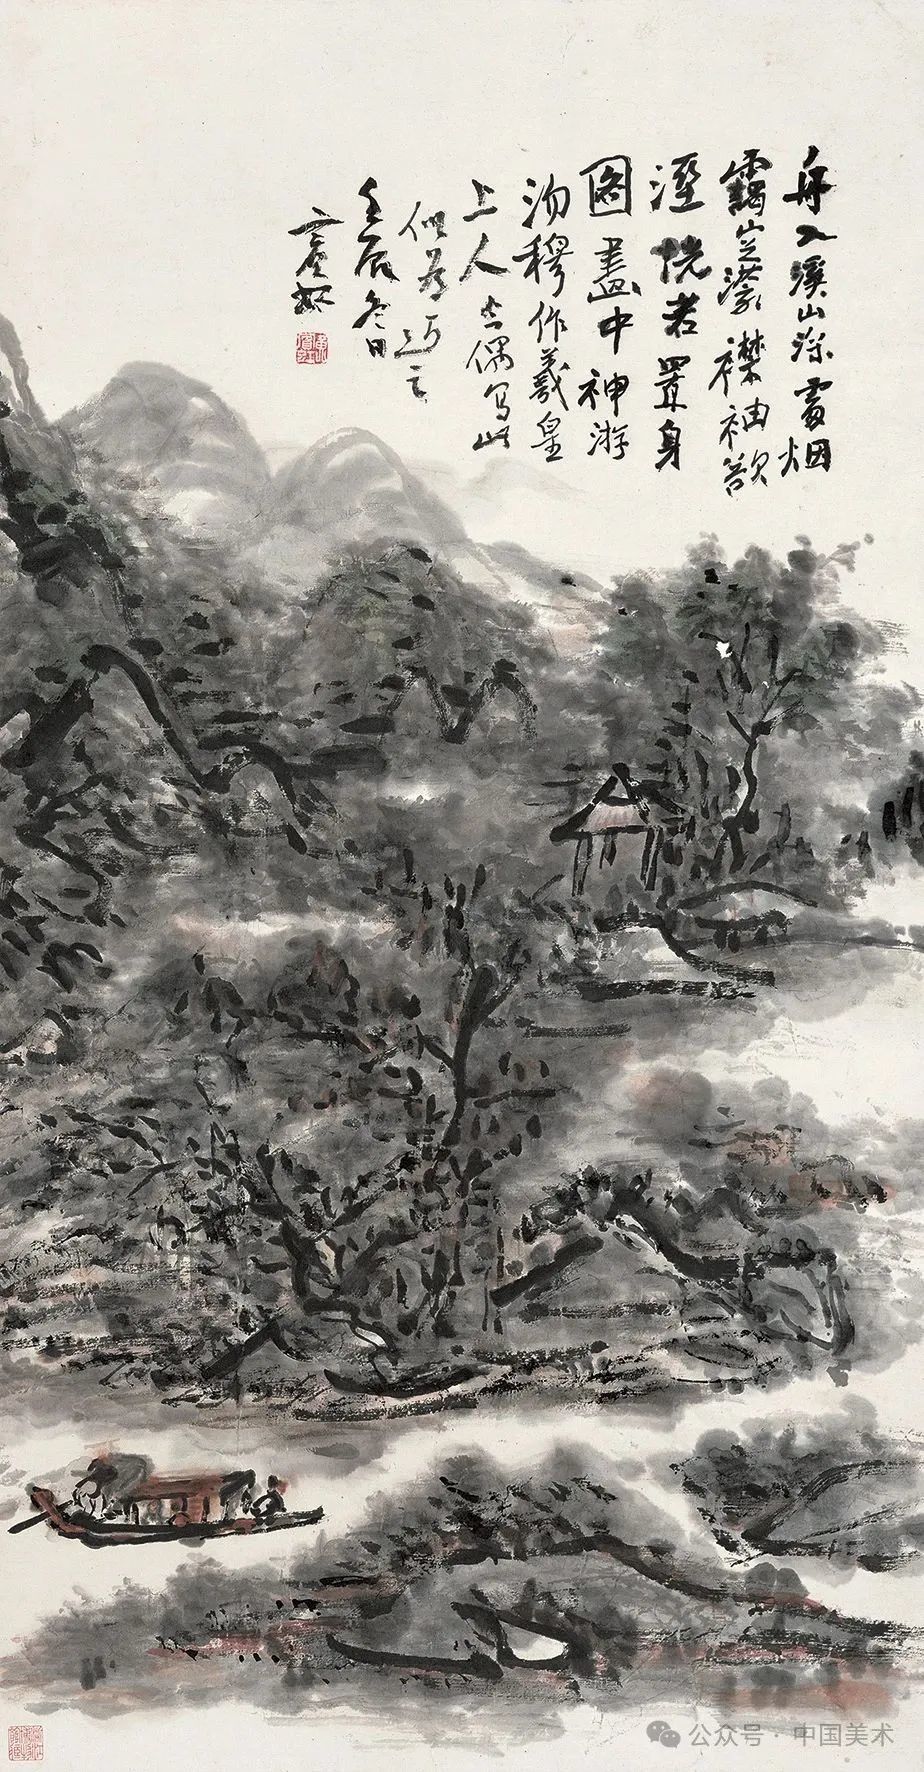 舟入溪山深處烟
靄空濛襟袖欲
溼恍若置身
圖畫中神游
沕穆作羲皇
上人偶寫此
似
壬辰冬日
賓虹
公众号 · 中国美术